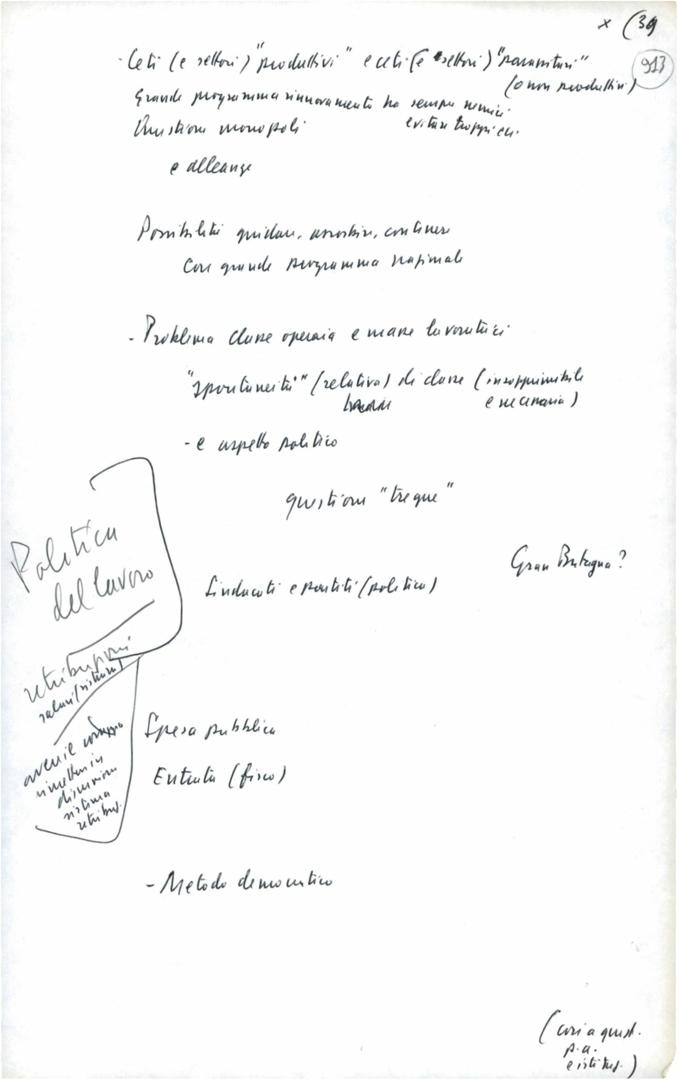 x (39
913
- Ceti (e settori) "produttivi" e ceti (e settori) "parassitari"
(o non produttivi)
Grande programma rinnovamento ha sempre nemici
evitare troppi
Questione monopoli
e alleanze
Possibilità guidare, assorbire, contenere
con grande programma nazionale
- Problema classe operaia e masse lavoratrici
"spontaneità" (relativa) di classe (insopprimibile
e necessaria)
- e aspetto politico
questione "tregue"
Gran Bretagna?
Politica
del lavoro
Sindacati e partiti (politico)
retribuzioni
salari (sistema)
avenire
rimettere in
discussione
sistema
retribuz.
Spesa pubblica
Entrata (fisco)
- Metodo democratico
(così a quest.
p.a.
e istituz.)